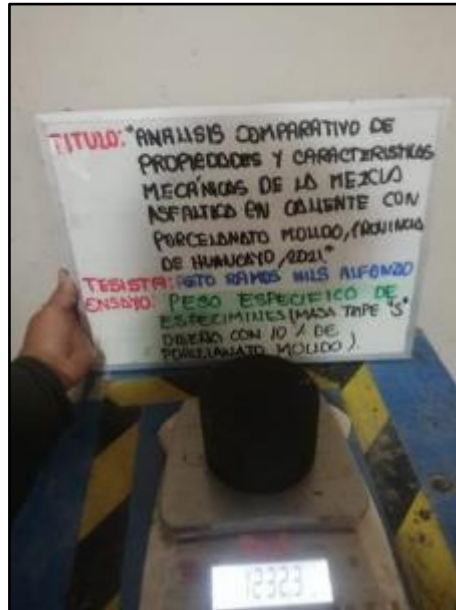 TITULO: "ANALISIS COMPARATIVO DE
PROPIEDADES Y CARACTERISTICAS
MECÁNICAS DE LA MEZCLA
ASFALTICA EN CALIENTE CON
PORCELANATO MOLIDO, PROVINCIA
DE HUANCAYO, 2021."
TESISTA: POTO RAMOS NILS ALFONZO
ENSAYO: PESO ESPECIFICO DE
ESPECIMENES (MASA TMPE "S"
DISEÑO CON 10 % DE
PORCELANATO MOLIDO).
1232.3